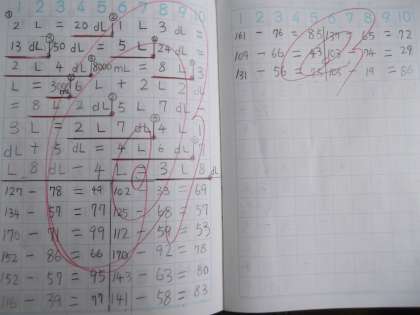 1 2 3 4 5 6 7 8 9 10
① 2 L = 20 dL ② 1 L 3 dL =
13 dL 50 dL = 5 L 24 dL =
2 L 4 dL 8000 mL = 8 L 3
L = 3000 mL 6 L + 2 L 2
= 8 L 2 dL 5 L 7 dL -
3 L = 2 L 7 dL 4 L 1
dL + 5 dL = 4 L 6 dL
L 8 dL - 4 L = 3 L 8 dL
127 - 78 = 49 102 - 33 = 69
134 - 57 = 77 125 - 68 = 57
170 - 71 = 99 112 - 59 = 53
152 - 86 = 66 170 - 92 = 78
152 - 57 = 95 143 - 63 = 80
116 - 39 = 77 141 - 58 = 83
1 2 3 4 5 6 7 8 9 10
161 - 76 = 85 137 - 65 = 72
109 - 66 = 43 103 - 74 = 29
131 - 56 = 75 105 - 19 = 86